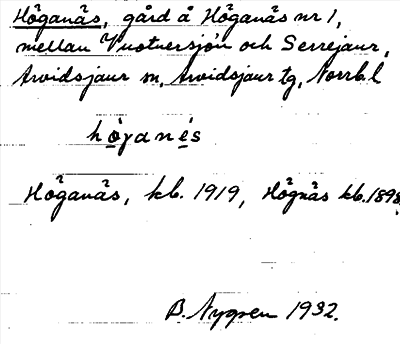 Höganäs, gård å Höganäs nr 1,
mellan Vuotnersjön och Serrejaur,
Arvidsjaur sn, Arvidsjaur tg, Norrb.l
höganés
Höganäs, kb. 1919, Högnäs kb. 1898.
B. Nygren 1932.